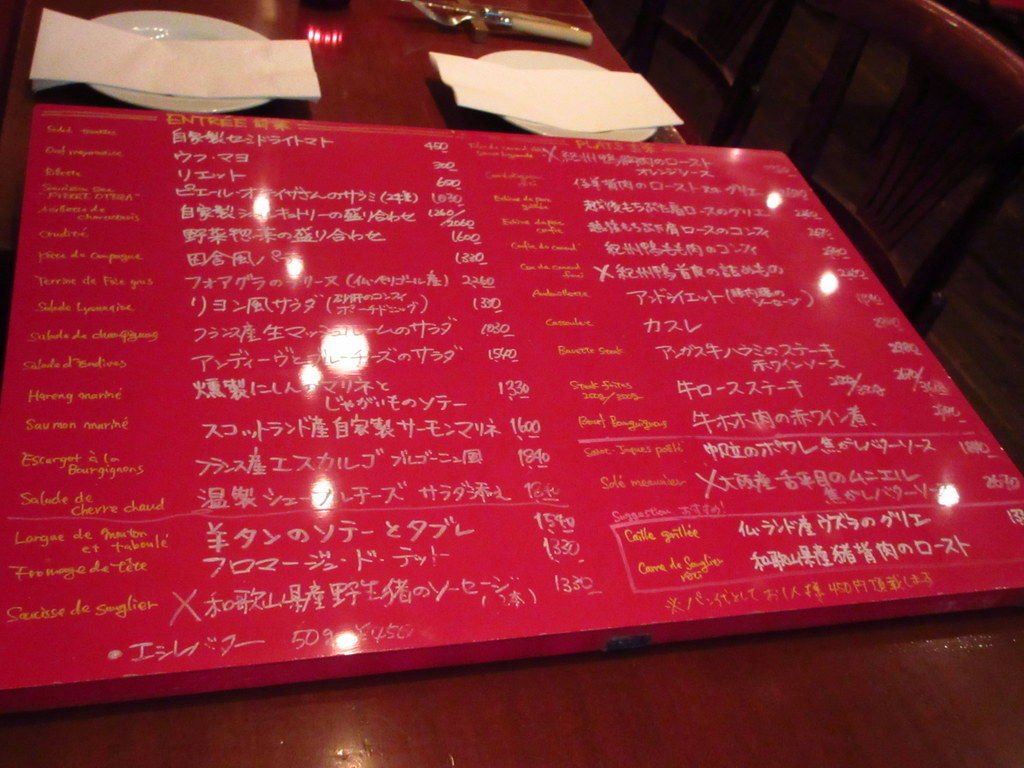 ENTRÉE 前菜
自家製セミドライトマト 450
ウフ・マヨ 300
Rillette リエット 600
"PIERRE OTEIZA" ピエール・オテイザさんのサラミ(2種) 1030
自家製シャルキュトリーの盛り合わせ 1260/2060
Crudité 野菜惣菜の盛り合わせ 1600
Pâté de campagne 田舎風パテ 1330
Terrine de Foie gras フォアグラのテリーヌ 2260
Salade Lyonnaise リヨン風サラダ(砂肝のコンフィ ポーチドエッグ) 1330
Salade de champignons フランス産生マッシュルームのサラダ 1030
Salade d'endives アンディーヴとブルーチーズのサラダ 1540
Hareng mariné 燻製にしんのマリネと 1330
じゃがいものソテー
Saumon mariné スコットランド産自家製サーモンマリネ 1600
Escargot à la フランス産エスカルゴ ブルゴーニュ風 1840
Bourgignons
Salade de 温製シェーブルチーズ サラダ添え
chèvre chaud
Langue de mouton 羊タンのソテーとタブレ 1540
et taboulé
Fromage de tête フロマージュ・ド・テット 1330
Saucisse de sanglier X和歌山県産野生猪のソーセージ 1330
• エシレバター 50g ¥450
PLATS
X紀州鴨胸肉のロースト
オレンジソース
越後もちぶた肩ロースのグリエ
越後もちぶた肩ロースのコンフィ
紀州鴨もも肉のコンフィ
X紀州鴨首皮の詰めもの
Andouillette アンドゥイエット
Cassoulet カスレ
Bavette steak アンガス牛ハラミのステーキ
赤ワインソース
Steak frites 牛ロースステーキ
200g/300g
Boeuf Bourguignons 牛ホホ肉の赤ワイン煮
Saint-Jaques poêlé 帆立のポワレ 焦がしバターソース
Sole meunière X大阪産舌平目のムニエル
焦がしバターソース
Suggestion おすすめ!
Caille grillée 仏・ランド産ウズラのグリエ
Carré de Sanglier 和歌山県産猪背肉のロースト
rôti
※パン代としてお1人様450円頂戴します